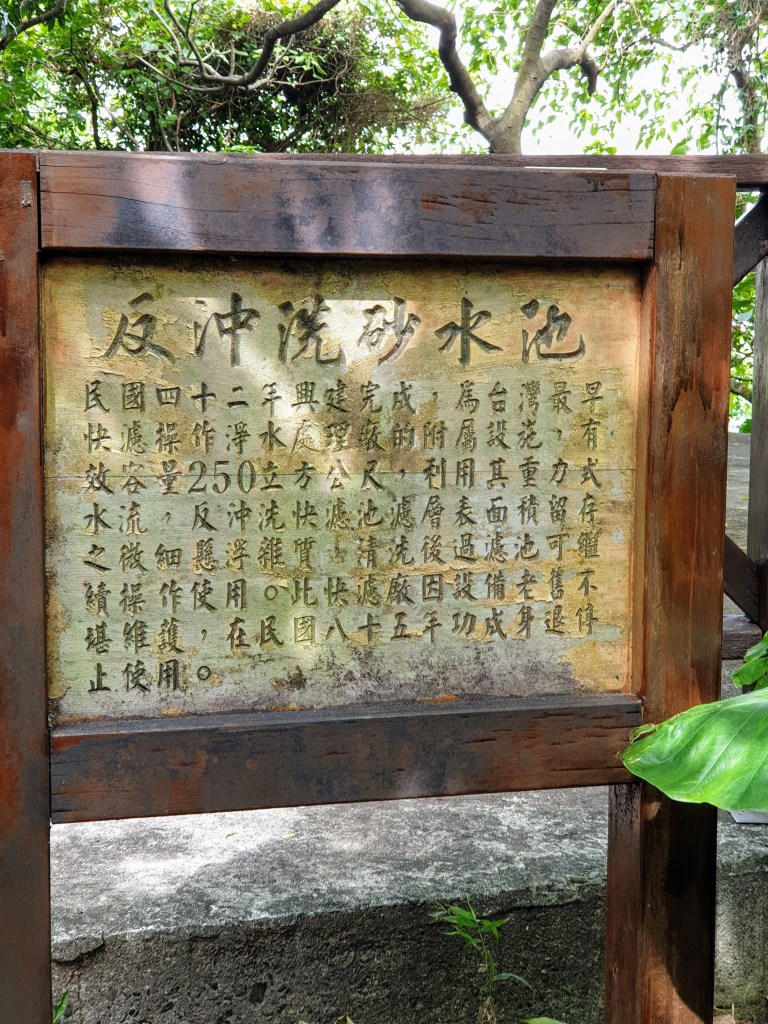 反沖洗砂水池
民國四十二年興建完成，為台灣最早
快濾操作淨水處理廠的附屬設施，有
效容量250立方公尺，利用其重力式
水流，反沖洗快濾池濾層表面積留存
之微細懸浮雜質、清洗後過濾池可繼
續操作使用。此快濾廠因設備老舊不
堪維護，在民國八十五年功成身退停
止使用。